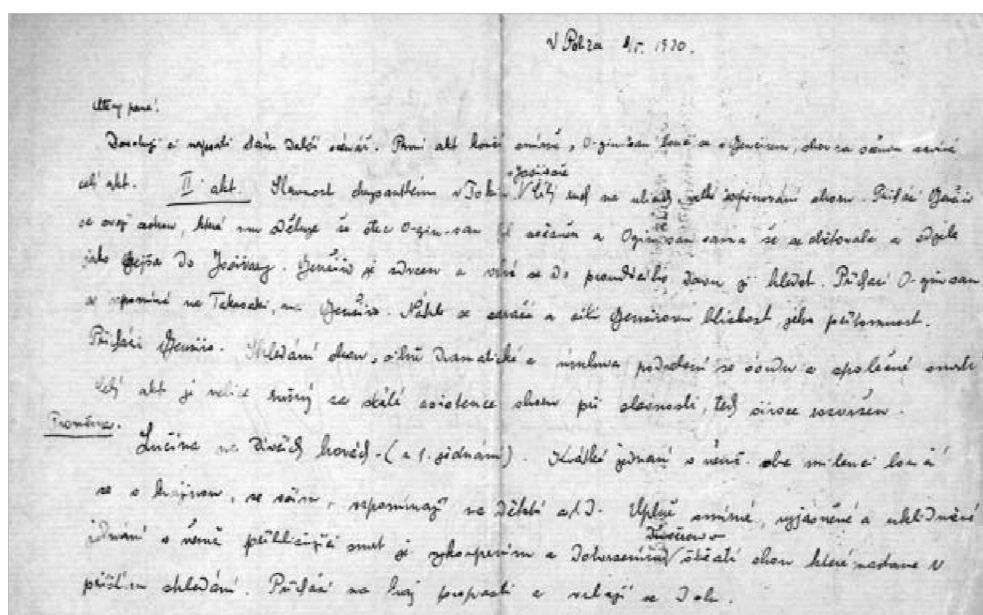 V Praze 1930.
Milý pane!
Dovoluji si napsati Vám další scénář. První akt končí smírně, O-gin-san loučí se s Genširem, sborem
celý akt. II akt. Slavnost chrysanthem v Tokiu Jošivaře celý na ulici, velké sboru. Přichází Genširo
se svojí která mu sděluje že otec O-gin-san byl a O-gin-san sama že se obětovala a odjela
jako gejša do Jošivary. Genširo je zdrcen a se do davu ji hledat. Přichází O-gin-san
a vzpomíná na Takasaki, na Genšira. Náhle se a cítí Genširovu blízkost, jeho přítomnost.
Přichází Genširo. Shledání obou, silně dramatické a úmluva podrobení se osudu a společné smrti
celý akt je velice rušný za stálé asistence sboru při slavnosti, tedy široce rozvržen.
Proměna.
Lučina na Dívčích horách. (z 1. jednání). Krátké jednání v němž oba milenci loučí
se s krajinou, se vším, vzpomínají na dětství atd. Úplně smírné, vyjasněné a uklidněné
jednání v němž přibližující smrt je vykoupením a štěstí obou které nastane v
příštím shledání. Přichází na kraj propasti a vrhají se dolů.